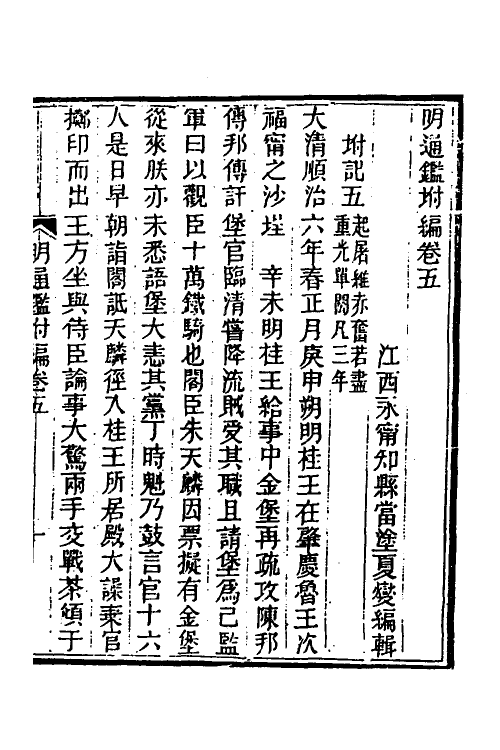 明通鑑坿編卷五
江西永甯知縣當塗夏燮編輯
坿記五
起屠維赤奮若盡
重光單閼凡三年
大清順治六年春正月庚申朔明桂王在肇慶魯王次
福甯之沙埕　辛未明桂王給事中金堡再疏攻陳邦
傅邦傅訐堡官臨清嘗降流賊受其職且請堡爲己監
軍曰以觀臣十萬鐵騎也閣臣朱天麟因票擬有金堡
從來朕亦未悉語堡大恚其黨丁時魁乃鼓言官十六
人是日早朝詣閣詆天麟徑入桂王所居殿大譟棄官
擲印而出王方坐與侍臣論事大驚兩手交戰茶傾于
明通鑑坿編卷五
一